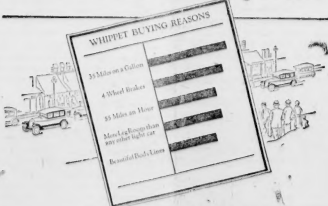 WHIPPET BUYING REASONS
35 Miles on a Gallon
4 Wheel Brakes
55 Miles an Hour
More Leg Room than
any other light car
Beautiful Body Lines